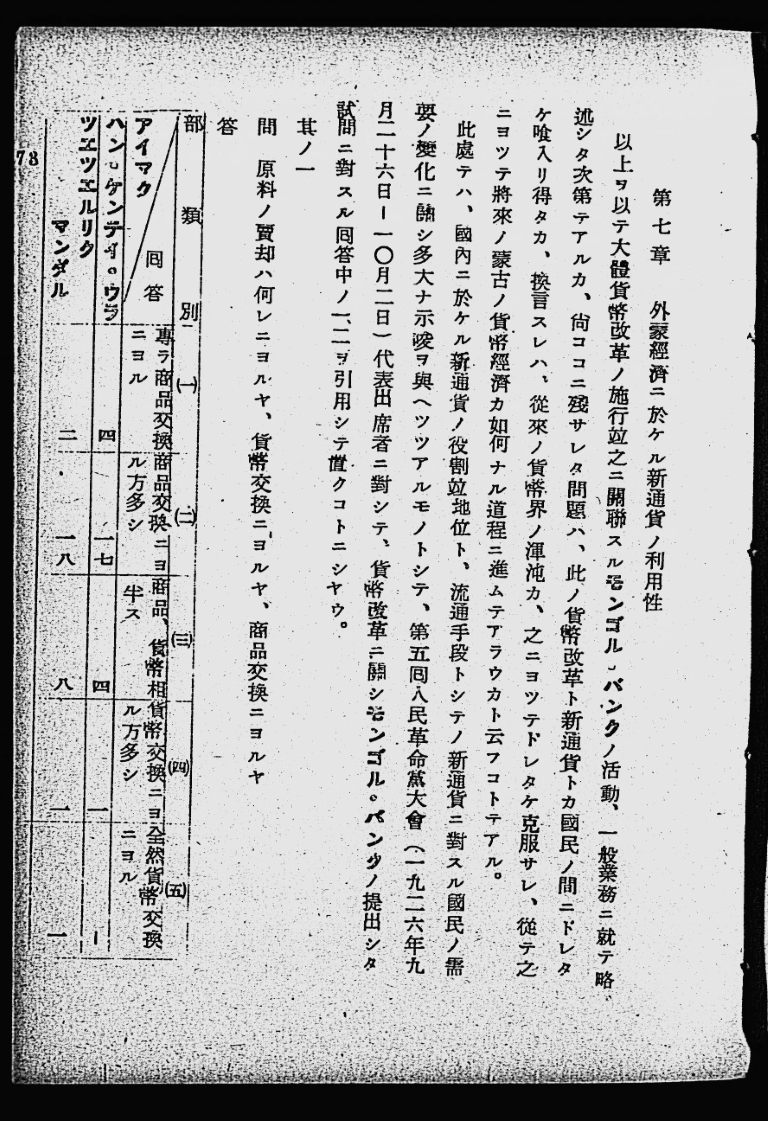 第七章　外蒙經濟ニ於ケル新通貨ノ利用性
以上ヲ以テ大體貨幣改革ノ施行竝之ニ關聯スルモンゴル・バンクノ活動、一般業務ニ就テ略
述シタ次第テアルカ、尙ココニ殘サレタ問題ハ、此ノ貨幣改革ト新通貨トカ國民ノ間ニドレタ
ケ喰入リ得タカ、換言スレハ、從來ノ貨幣界ノ渾沌カ、之ニヨツテドレタケ克服サレ、從テ之
ニヨツテ將來ノ蒙古ノ貨幣經濟カ如何ナル道程ニ進ムテアラウカト云フコトテアル。
此處テハ、國內ニ於ケル新通貨ノ役割竝地位ト、流通手段トシテノ新通貨ニ對スル國民ノ需
要ノ變化ニ關シ多大ナ示唆ヲ與ヘツツアルモノトシテ、第五囘人民革命黨大會（一九二六年九
月二十六日ー一〇月二日）代表出席者ニ對シテ、貨幣改革ニ關シモンゴル。バンクノ提出シタ
試問ニ對スル囘答中ノ一、二ヲ引用シテ置クコトニシヤウ。
其ノ一
問　原料ノ賣却ハ何レニヨルヤ、貨幣交換ニヨルヤ、商品交換ニヨルヤ
答
部類別　㈠　㈡　㈢　㈣　㈤
囘答　專ラ商品交換ニヨル　商品交換ニヨル方多シ　商品、貨幣相半ス　貨幣交換ニヨル方多シ　全然貨幣交換ニヨル
アイマク
ハン・ケンテイ。ウラ　四　一七　四　一　ー
ツエツエルリク
マンダル　二　一八　八　一　一
78